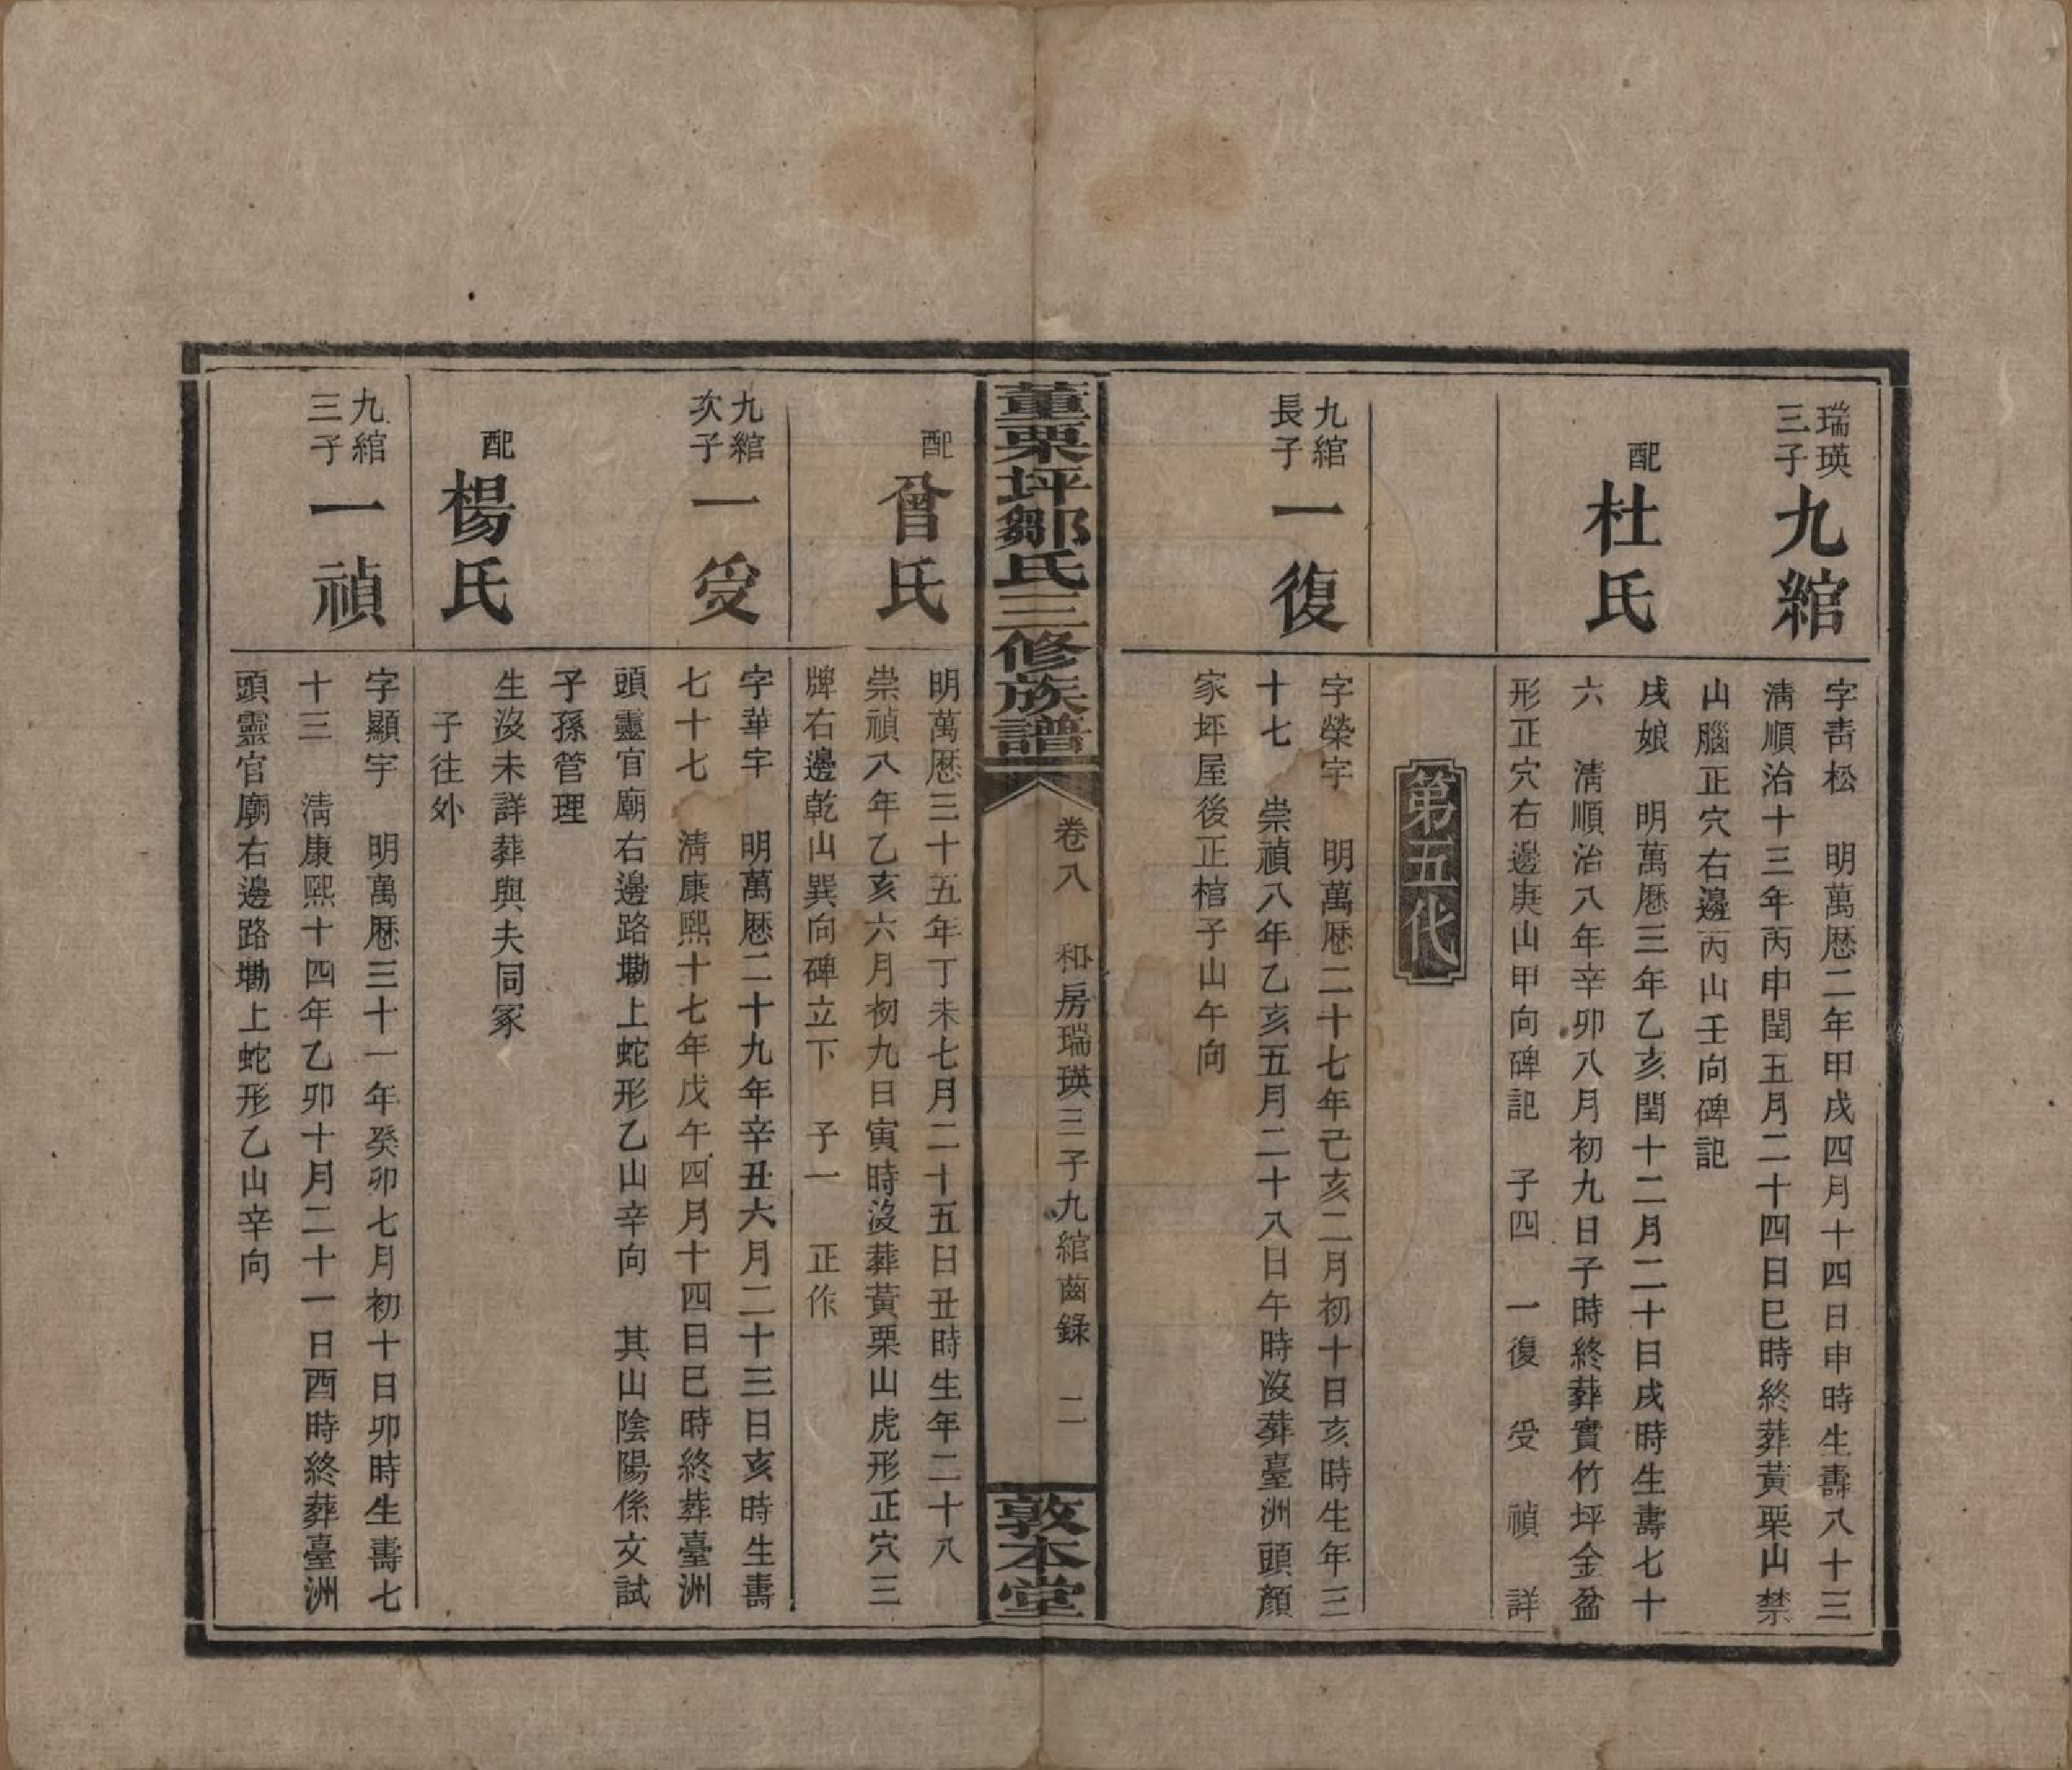 瑞瑛
三子
九綰
字青松　明萬厯二年甲戌四月十四日申時生壽八十三
清順治十三年丙申閏五月二十四日巳時終葬黃栗山禁
山腦正穴右邊丙山壬向碑記
配
杜氏
戌娘　明萬厯三年乙亥閏十二月二十日戌時生壽七十
六　清順治八年辛卯八月初九日子時終葬實竹坪金盆
形正穴右邊庚山甲向碑記　子四　一復　受　禎　詳
第五代
九綰
長子
一復
字榮宇　明萬厯二十七年己亥二月初十日亥時生年三
十七　崇禎八年乙亥五月二十八日午時沒葬臺洲頭顏
家坪屋後正棺子山午向
董栗坪鄒氏三修族譜
卷八　和房瑞瑛三子九綰齒錄　二
敦本堂
配
曾氏
明萬厯三十五年丁未七月二十五日丑時生年二十八
崇禎八年乙亥六月初九日寅時沒葬黃栗山虎形正穴三
牌右邊乾山巽向碑立下　子一　正作
九綰
次子
一受
字華宇　明萬厯二十九年辛丑六月二十三日亥時生壽
七十七　清康熙十七年戊午四月十四日巳時終葬臺洲
頭靈官廟右邊路墈上蛇形乙山辛向　其山陰陽係文試
子孫管理
配
楊氏
生沒未詳葬與夫同冢
子往外
九綰
三子
一禎
字顯宇　明萬厯三十一年癸卯七月初十日卯時生壽七
十三　清康熙十四年乙卯十月二十一日酉時終葬臺洲
頭靈官廟右邊路墈上蛇形乙山辛向